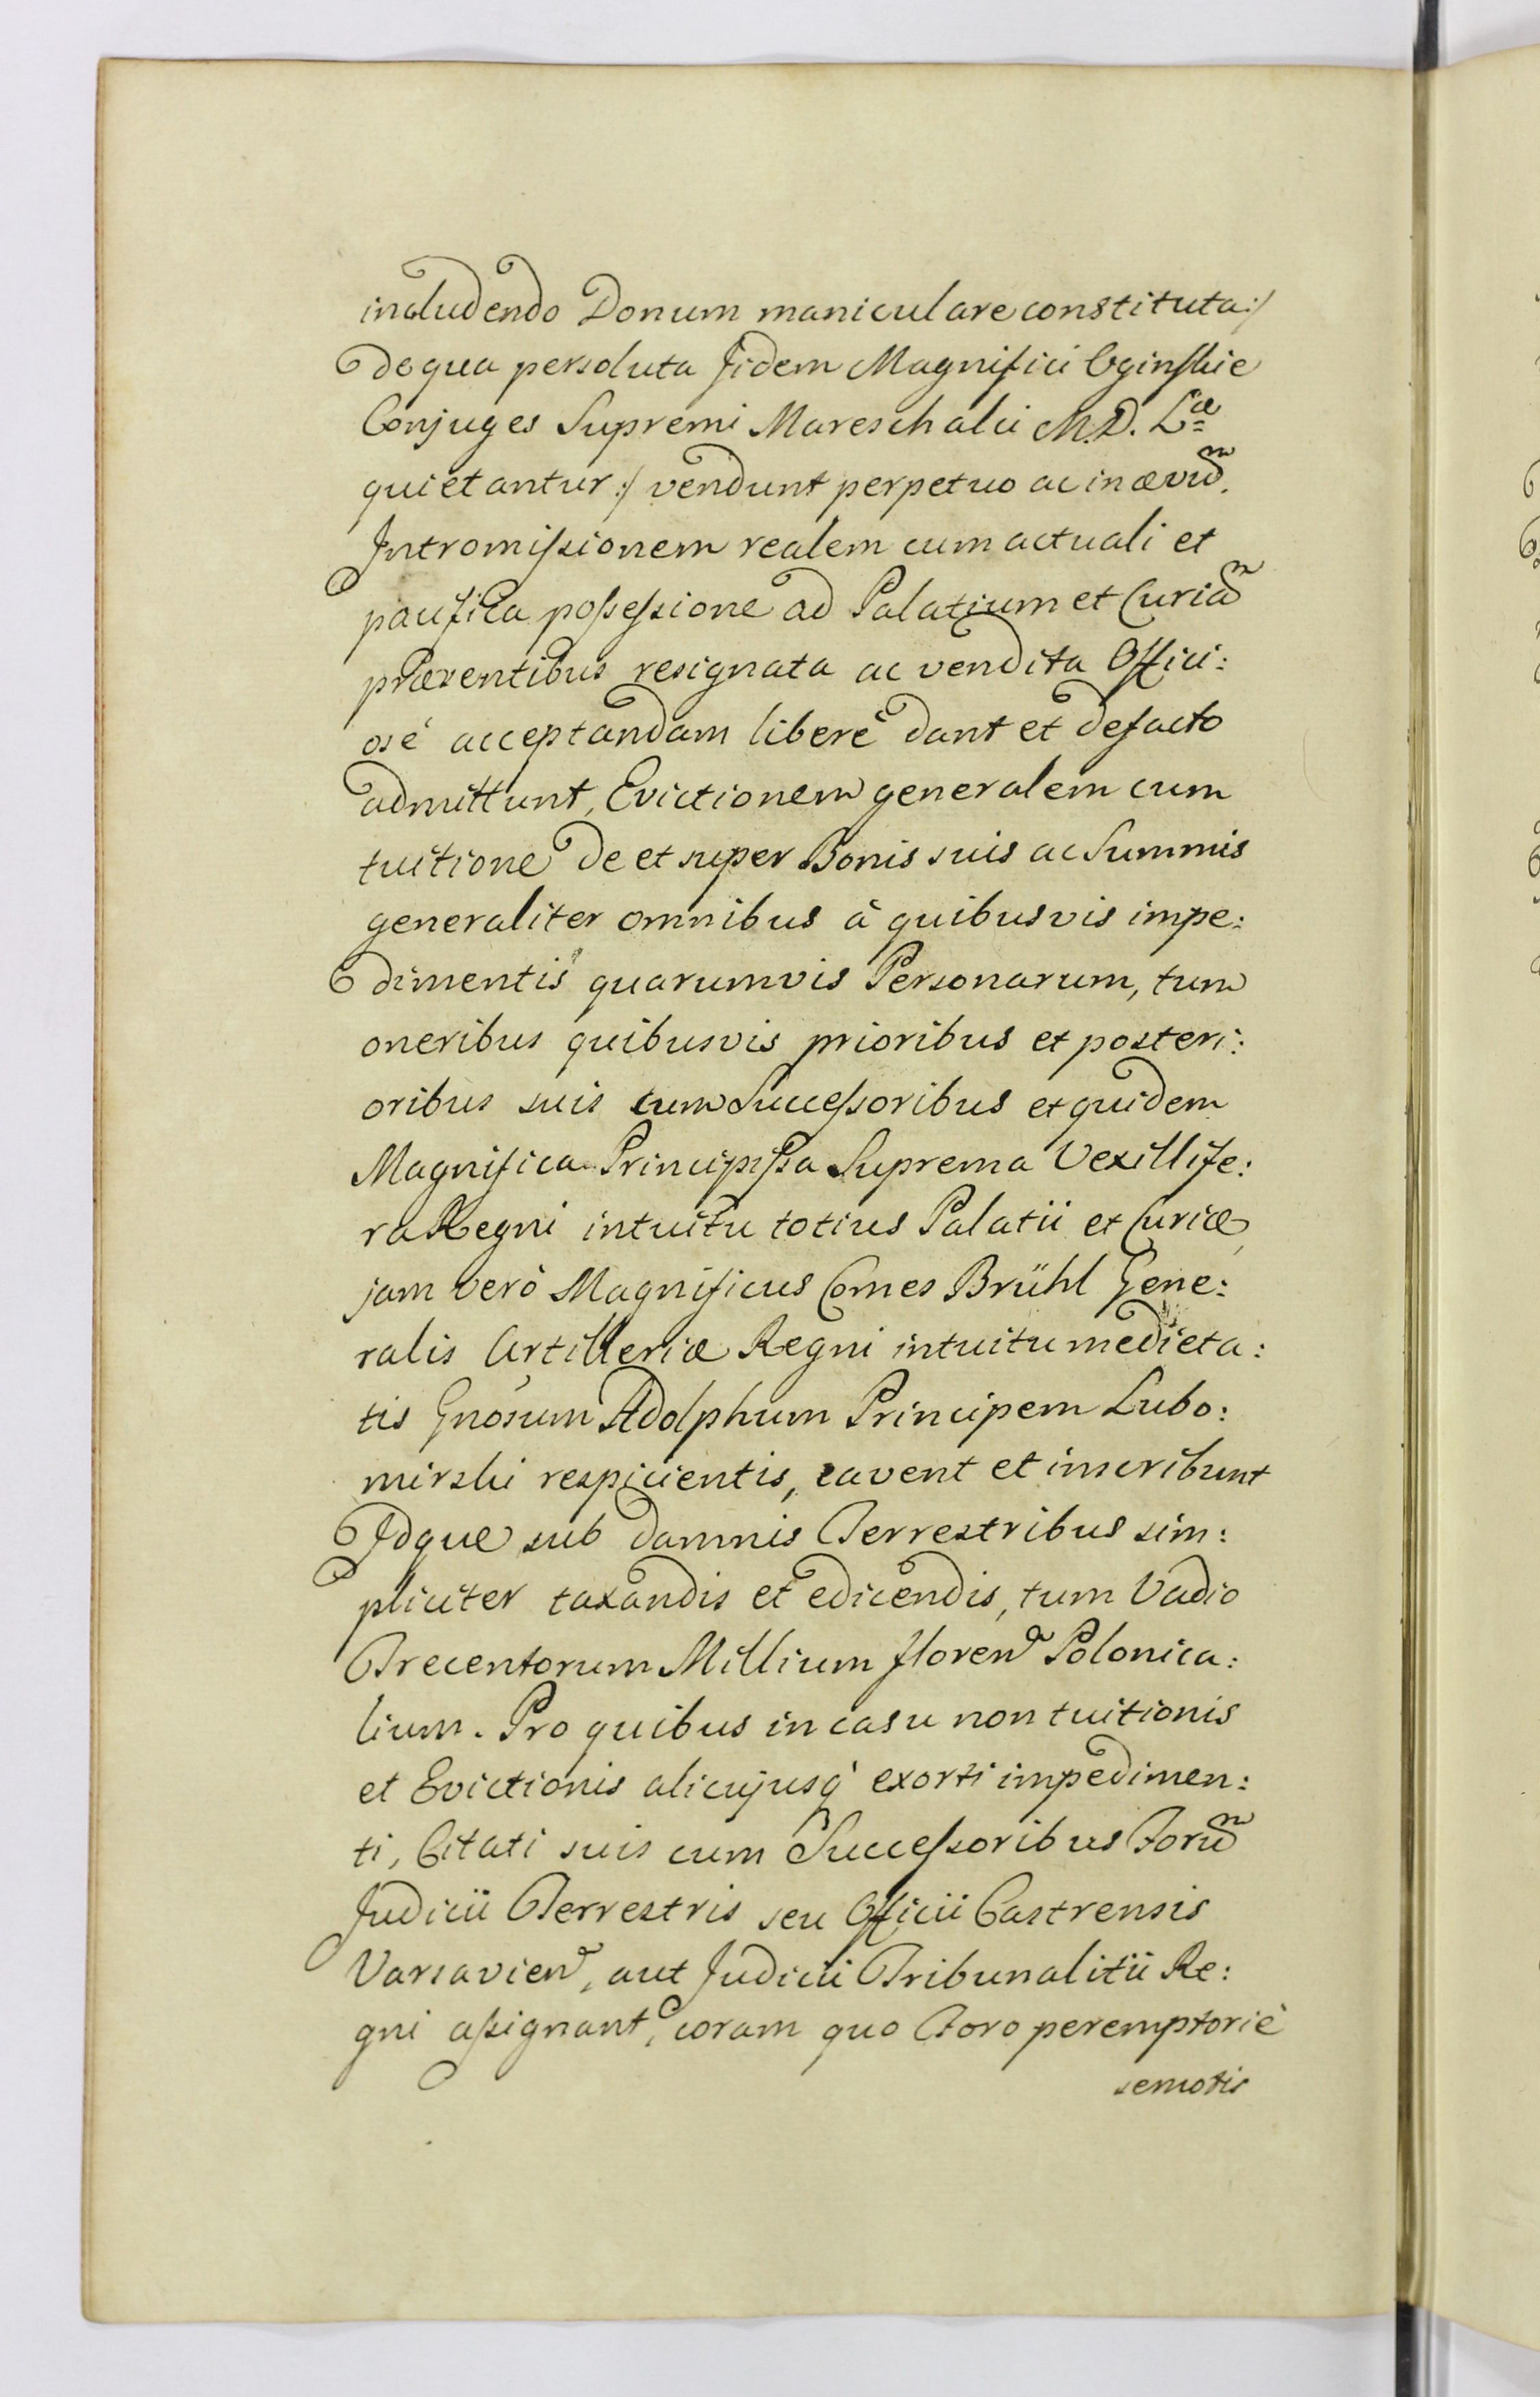 includendo Donum maniculare constituta:/
de qua persoluta fidem Magnifici Oginskie
Conjuges Supremi Mareschalci M.D. L<sup>æ</sup>
quietantur:/ vendunt perpetuo ac in ævu<sup>m</sup>.
Intromiſsionem realem cum actuali et
pacifica poſseſsione ad Palatium et Curia<sup>m</sup>
præsentibus resignata ac vendita Offici:
osé acceptandam liberè dant et defacto
admittunt, Evictionem generalem cum
tuitione de et super Bonis suis ac Summis
generaliter omnibus à quibusvis impe:
dimentis quarumvis Personarum, tum
oneribus quibusvis prioribus et posteri:
oribus suis cum Succeſsoribus et quidem
Magnifica Principiſsa Suprema Vexillife:
ra Regni intuitu totius Palatii et Curiæ,
jam verò Magnificus Comes Brühl Gene:
ralis Artilleriæ Regni intuitu medieta:
tis Gnosum Adolphum Principem Lubo:
mirski respicientis, cavent et inscribunt
Idque sub damnis Terrestribus sim:
pliciter taxandis et edicendis, tum Vadio
Trecentorum Millium floren Polonica:
lium. Pro quibus in casu non tuitionis
et Evictionis alicujusq exorti impedimen:
ti, Citati suis cum Succeſsoribus Foru<sup>m</sup>
Judicii Terrestris seu Officii Castrensis
Varsavien, aut Judicii Tribunalitii Re:
gni aſsignant, coram quo Foro peremptoriè
semotis